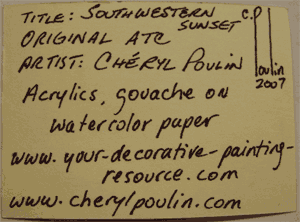 TITLE: SOUTHWESTERN
SUNSET
ORIGINAL ATC
ARTIST: CHÉRYL POULIN
Acrylics, gouache on
watercolor paper
www.your-decorative-painting-
resource.com
www.cherylpoulin.com
C.P
oulin
2007